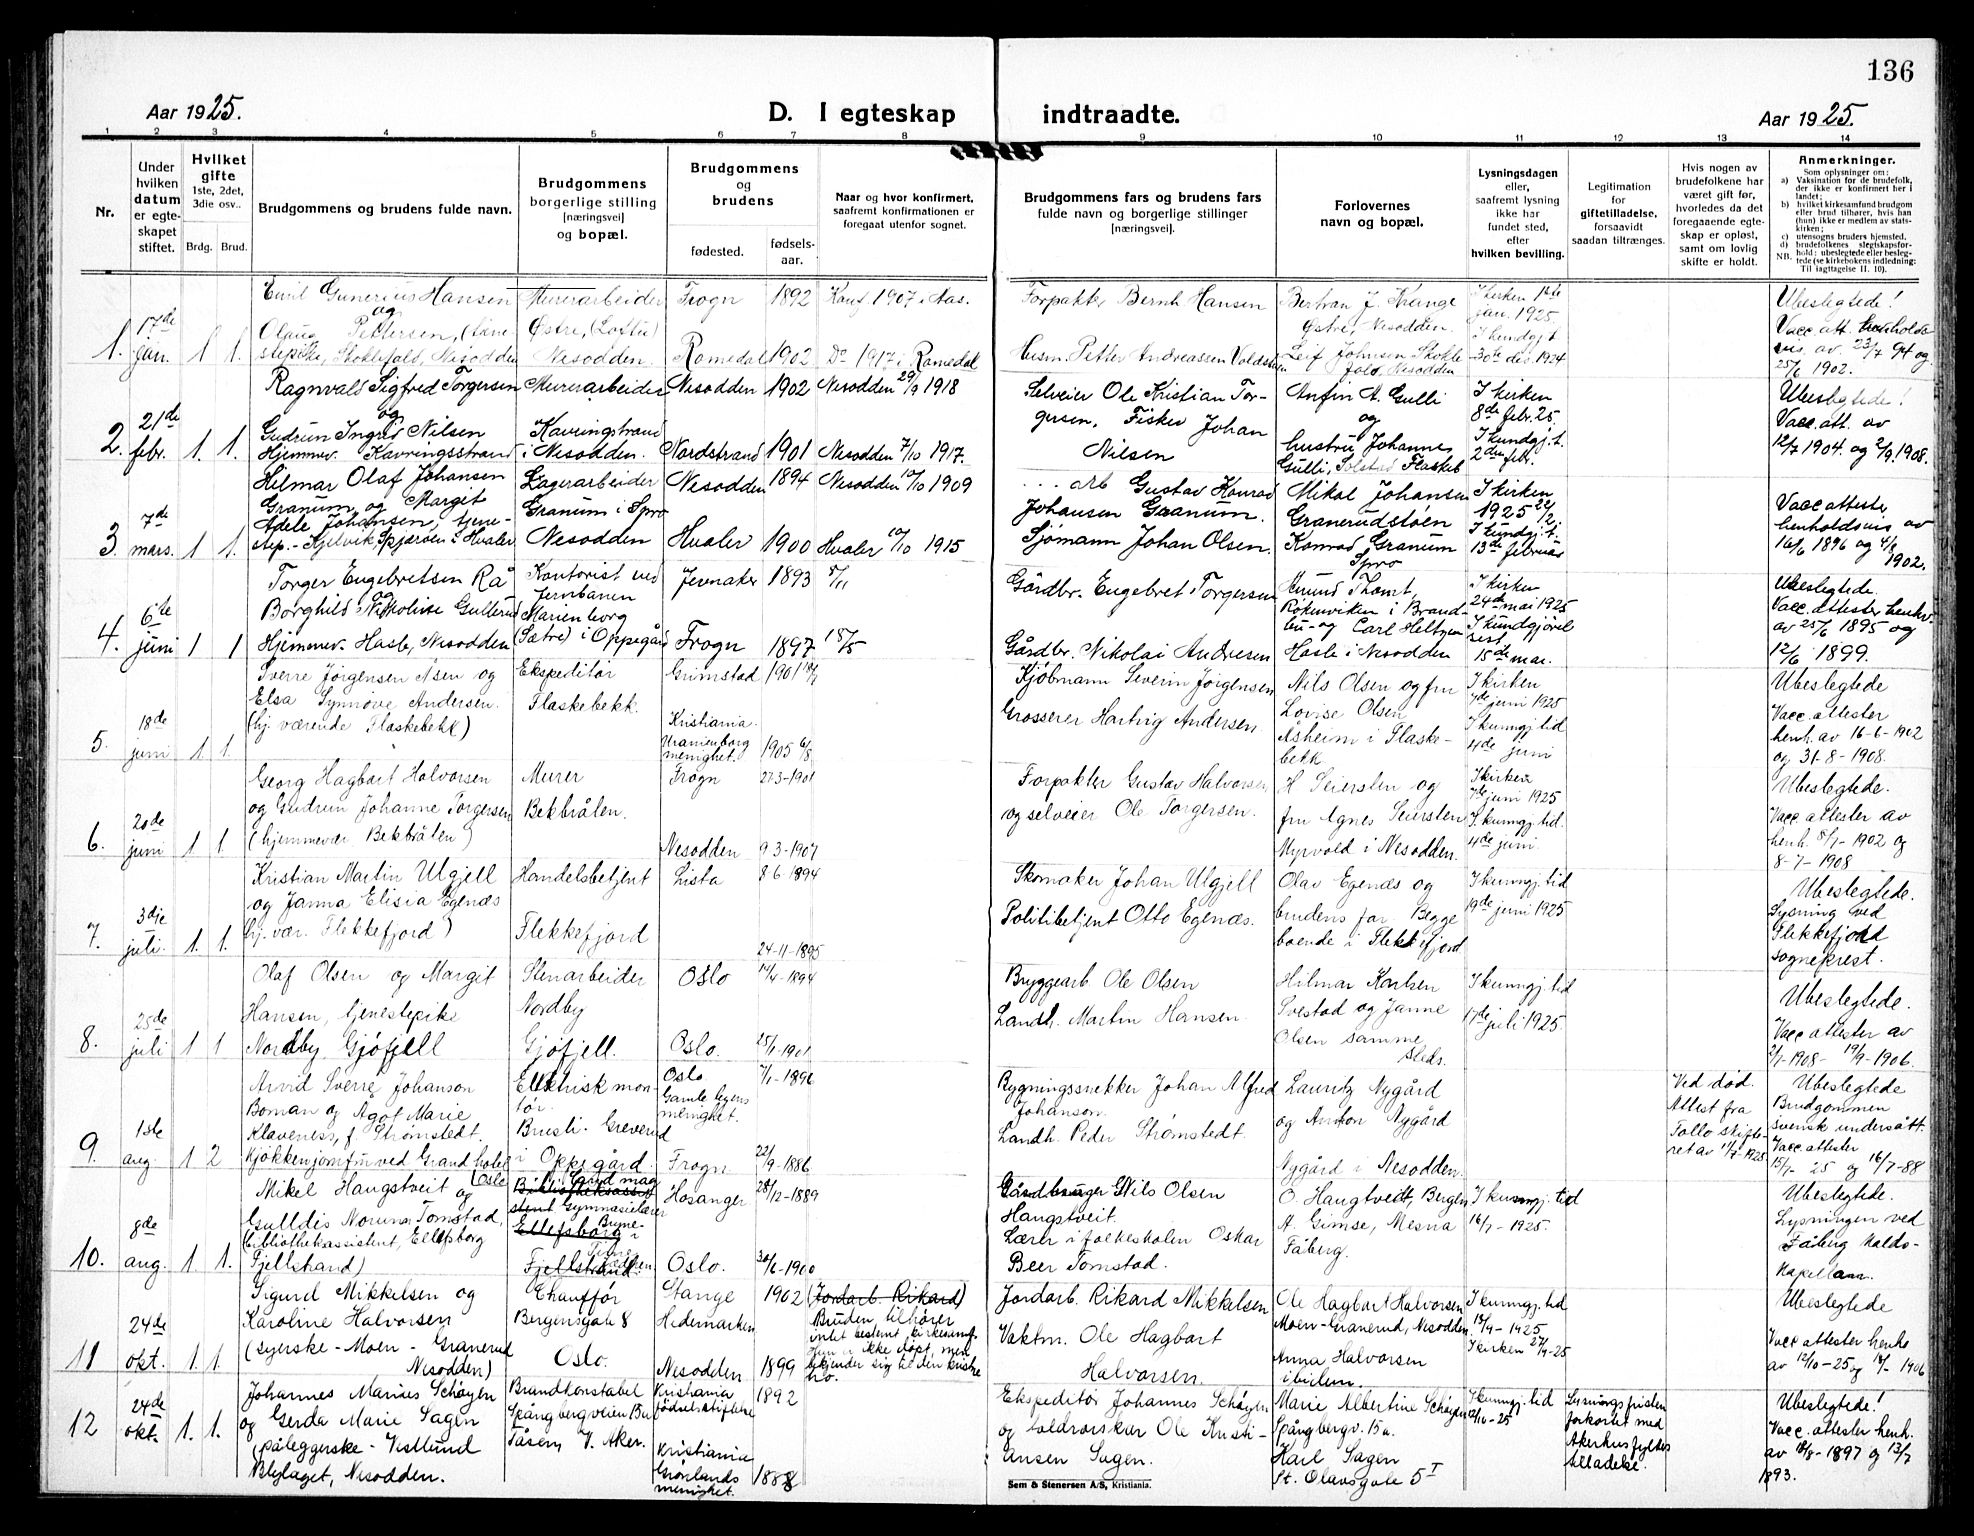 136
Aar 1925.
D. I egteskap indtraadte.
Aar 1925.
1 2 3 4 5 6 7 8 9 10 11 12 13 14
Nr.
Under hvilken datum er egte-skapet stiftet.
Hvilket gifte
1ste, 2det, 3die osv..
Brdg. Brud.
Brudgommens og brudens fulde navn.
Brudgommens borgerlige stilling [næringsvei] og bopæl.
Brudgommens og brudens
fødested.
fødsels-aar.
Naar og hvor konfirmert, saafremt konfirmationen er foregaat utenfor sognet.
Brudgommens fars og brudens fars fulde navn og borgerlige stillinger [næringsvei].
Forlovernes navn og bopæl.
Lysningsdagen eller, saafremt lysning ikke har fundet sted, efter hvilken bevilling.
Legitimation for giftetilladelse, forsaavidt saadan tiltrænges.
Hvis nogen av brudefolkene har været gift før, hvorledes da det foregaaende egte-skap er opløst, samt om lovlig skifte er holdt.
Anmerkninger.
Som oplysninger om:
a) Vaksination for de brudefolk, der ikke er konfirmert her i landet;
b) hvilket kirkesamfund brudgom eller brud tilhører, hvis han (hun) ikke er medlem av stats-kirken;
c) utensogns bruders hjemsted,
d) brudefolkenes slegtskapsfor-hold: ubeslegtede eller besleg-
NB. tede (se kirkebokens indledning: Til iagttagelse II. 10).
1. 17de jan. 1 1.
Emil Gunerius Hansen
og
Olaug Pettersen, (tjene-
stepike, Skoklefald, Nesodden
Murerarbeider
Østre, (Loftu)
Nesodden.
Frogn 1892 Konf. 1907 i Nas.
Romedal 1902 Do 1917 i Romedal
Forpakter Bernh. Hansen
Husm. Petter Andreassen
Bertran J. Krange
Østre, Nesodden.
Leif Johnsen Skokle-
fald, Nesodden
I kirken 1ste
jan. 1925.
I kundgj.t.
30te des. 1924
Ubeslegtede!
Vacc. att. henholds
vis av 23/7 94 og
25/6 1902.
2. 21de febr. 1. 1.
Ragnvald Sigfred Torgersen
og
Gudrun Ingrid Nilsen
Hjemmev. Kavringsstrand
Murerarbeider
Kavringstrand
i Nesodden.
Nesodden 1902 Nesodden 29/9 1918
Nordstrand 1901 Nesodden 7/10 1917.
Selveier Ole Kristian Tor-
gersen, Fisker Johan
Nilsen
Anfin A. Gulli
og
hustru Johanne
Gulli, Solstad Flaskeb
I kirken
8de febr. 25.
I kundgj.t.
2den febr.
Ubeslegtede!
Vacc. att. av
12/7 1904 og 2/9 1908.
3. 7de mars. 1 1.
Hilmar Olaf Johansen
Granum og Margit
Adele Johansen, tjene-
step.- Kjelvik, Spjærøen i Hvaler
Lagerarbeider
Granum i Spro
Nesodden
Nesodden 1894 Nesodden 10/10 1909
Hvaler 1900 Hvaler 10/10 1915
arb Gustav Konrad
Johansen Granum.
Sjømann Johan Olsen.
Mikal Johansen
Granerudstøen
Konrad Granum
Spro
I kirken
1925 22/2
I kundgj.t.
13de februar
Vacc atteste
henholdsvis av
16/6 1896 og 4/8
1902.
4. 6te juni 1 1
Torger Engebretsen Rå
og
Borghild Nikoline Gullerud
Hjemmev. Hasle, Nesodden
Kontorist ved
Jernbanen
Marienborg
(Sætre) i Oppegård
Jevnaker 1893
Frogn 1897
Gårdbr. Engebret Torgersen
Gårdbr. Nikolai Andresen
Amund Thomt,
Røkenviken i Brand-
bu- og Carl Heltzen
Hasle i Nesodden
I kirken
24de mai 1925
I kundgjørel
sest.
15de mai.
Ubeslegtede.
Vacc. attester henhv.
av 25/6 1895 og
12/6 1899.
5. 18de juni 1. 1.
Sverre Jørgensen Åsen og
Elsa Synnøve Andersen.
(hj. værende Flaskebekk)
Ekspeditør
Flaskebekk.
Grimstad 1901
Kristiania.
Uranienborg
menighet. 1905 6/8
Kjøbmann Severin Jørgensen
Grosserer Hartvig Andersen.
Nils Olsen og fru
Lovise Olsen
Asheim i Flaske-
bekk
I kirken
7de juni 1925
I kunngj. tid
4de juni
Ubeslegtede
Vacc. attester
henh. av 16-6-1902
og 31-8-1908.
6. 20de juni 1 1.
Georg Hagbart Halvorsen
og Gudrun Johanne Torgersen
(hjemmevær. Bekbråten)
Murer
Bekbråten.
Frogn 27.3-1901
Nesodden 9 3-1907
Forpakter Gustav Halvorsen
og selveier Ole Torgersen.
H Seiersten og
fru Agnes Seiersten
Myrvold i Nesodden.
I kirken
7de juni 1925
I kunngj. tid.
4de juni.
Ubeslegtede.
Vacc. attester av
henh. 8/7-1902 og
8-7-1908
7. 3dje juli. 1. 1.
Kristian Martin Ulgjell
og Janna Elisia Egenæs
hj. vær. Flekkefjord)
Handelsbetjent
Flekkefjord
Lista 8 6-1894
24-11-1895
Skomaker Johan Ulgjell
Politibetjent Otto Egenæs.
Olav Egenæs og
brudens far. Begge
boende i Flekkefjord
I kunngj. tid
19de juni 1925
Ubeslegtede.
Lysning ved
Flekkefjord
sogneprest.
8. 25de juli 1 1
Olaf Olsen og Margit
Hansen, tjenestepike
Nordby Gjøfjell
Stenarbeider
Nordby
Gjøfjell.
Oslo 1894
Oslo. 25/1-1901
Bryggearb Ole Olsen
Landh. Martin Hansen.
Hilmar Karlsen
Svestad og Janne
Olsen samme
steds.
I kunngj. tid
17de juli 1925.
Ubeslegtede.
Vacc attester av
2/7-1908- 19/9-1906.
9. 1ste aug. 1 2
Arvid Sverre Johanson
Boman og Agot Marie
Klaveness, f. Strømstedt.
Kjøkkenjomfru ved Grand hotel
Oslo
Elektrisk mon-
tør.
Brusli - Greverud
i Oppegård.
Oslo 7/1-1896
Gamle byens
menighet.
Frogn. 22/9-1886
Bygningssnekker Johan Alfred
Johanson.
Landh. Peder Strømstedt.
Lauritz Nygård
og Anton Nygård
Nygård i Nesodden.
Ved død.
Attest fra
Follo skifte-
ret av 11/7-1925
Ubeslegtede
Brudgommen
svensk undersått.
Vacc attester
15/7-25 og 16/7-88
10. 8de aug. 1. 1.
Mikel Haugstveit og
Gulldis Noruna Tomstad,
bibliothekassistent, Ellefsborg
Fjellstrand)
Cand mag
Bibliotheksassi-
stent Gymnasielærer
Ellefsborg i
Fjellstrand.
Hosanger 28/12-1889
Oslo. 30/6-1900
Gårdbruger Nils Olsen
Haugstveit.
Lærer i folkeskolen Oskar
Beer Tomstad.
O. Haugtveit, Bergen
A. Gimse, Mesna
Fåberg.
I kunngj. tid
16/7-1925.
Ubeslegtede.
Lysningen ved
Fåberg kalds-
kapellan.
11 24de okt. 1. 1.
Sigurd Mikkelsen og
Karoline Halvorsen
(syerske - Moen - Granerud
Nesodden)
Chauffør
Bergensgate 8
Oslo.
Stange 1902
Hedemarken
Nesodden 1899
(Jordarb. Rikard)
Bruden tilhører
intet bestemt kirkesamf.
Hun er ikke døpt, men
bekjender sig til den kristne
Jordarb. Rikard Mikkelsen
Vaktm. Ole Hagbart
Halvorsen.
Ole Hagbart Halvorsen
Moen-Granerud, Nesodden.
Anna Halvorsen
ibidem.
I kunngj. tid
I kirken 27/9-25
Ubeslegtede
Vacc attester henho
av 12/10-25 og 1906
12 24de okt. 1. 1.
Johannes Marius Schøyen
og Gerda Marie Sagen
(påleggerske - Vestlund
Blylaget, Nesodden.
Brandkonstabel
Spångbergveien 15a
Tåsen, V. Aker.
Kristiania 1892
fødselsstiftelse
Kristiania
Grønlands
menighet. 1888
Ekspeditør Johannes Schøyen
og toldrorskar Ole Kristi-
ansen Sagen.
Marie Albertine Schøyen
Spångbergv. 15a.
Karl Sagen
St. Olavsgate 5 I
I kunngj. tid
12/10-25
Lysningsfristen
forkortet med
Akershus fylkes
tilladelse.
Ubeslegtede!
Vacc. attester henh.
av 18/8-1897 og 13/7
1893.
Sem & Stenersen A/S, Kristiania.